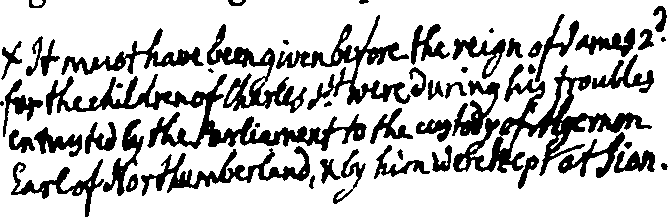 x It must have been given before the reign of James 2d.
for the children of Charles 1st. were during his troubles
entrusted by the Parliament to the custody of Algernon
Earl of Northumberland, & by him were kept at Sion.